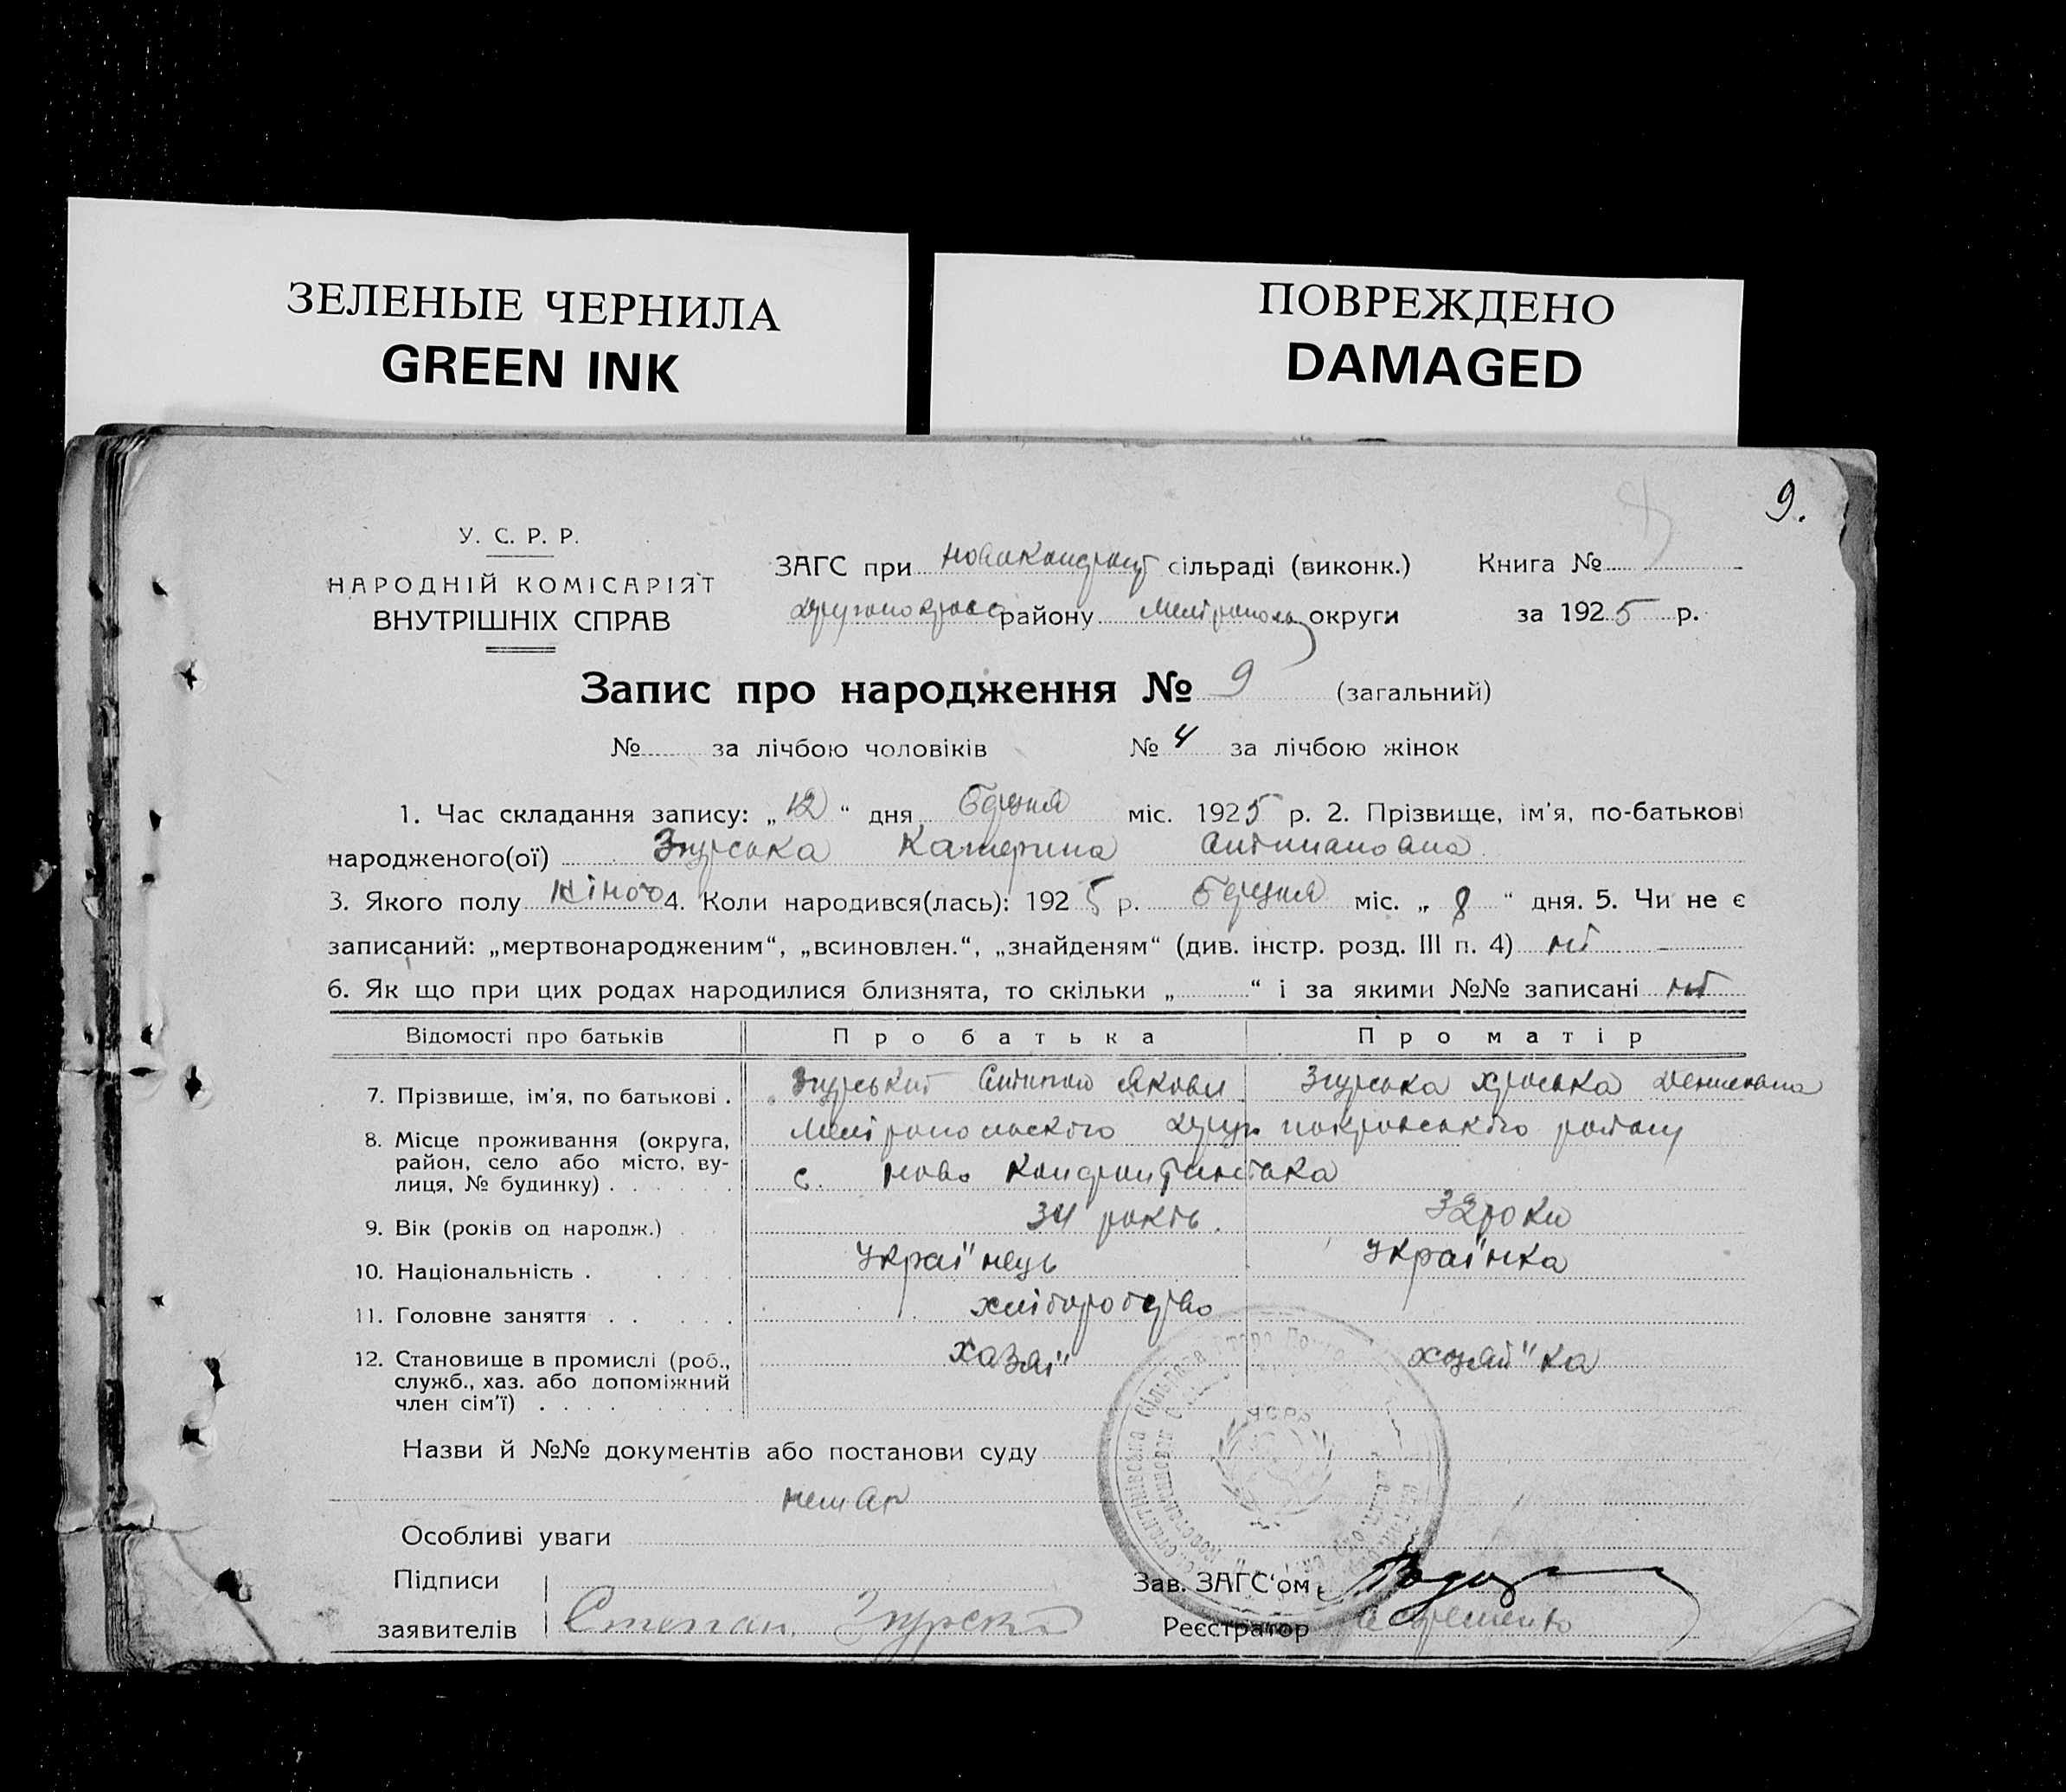 ЗЕЛЕНЫЕ ЧЕРНИЛА
GREEN INK
ПОВРЕЖДЕНО
DAMAGED
9.
У. С. Р. Р.
НАРОДНІЙ КОМІСАРІЯТ
ВНУТРІШНІХ СПРАВ
ЗАГС при сільраді (виконк.) Книга №
району Мелітополь округи за 1925 р.
Запис про народження № 9 (загальний)
№ за лічбою чоловіків № 4 за лічбою жінок
1. Час складання запису: „12“ дня березня міс. 1925 р. 2. Прізвище, ім'я, по-батькові
народженого(ої) Згурська Катерина
3. Якого полу жіночо 4. Коли народився(лась): 1925 р. березня міс. „ 8 “ дня. 5. Чи не є
записаний: „мертвонародженим“, „всиновлен.“, „знайденям“ (див. інстр. розд. III п. 4) ні
6. Як що при цих родах народилися близнята, то скільки „ “ і за якими №№ записані ні
Відомості про батьків Про батька Про матір
7. Прізвище, ім'я, по батькові . Згурський Якови Згурська
8. Місце проживання (округа, район, село або місто, вулиця, № будинку) . Мелітопольского покровського району
с. Ново
9. Вік (років од народж.) 34 років. 32 роки
10. Національність . Украї"нець Украї"нка
11. Головне заняття . . хліборобство
12. Становище в промислі (роб., служб., хаз. або допоміжний член сім'ї) . хазяї" хозяй"ка
УСРР
Назви й №№ документів або постанови суду
немає
Особливі уваги
Підписи
заявителів Степан Згурский
Зав. ЗАГС'ом
Реєстратор